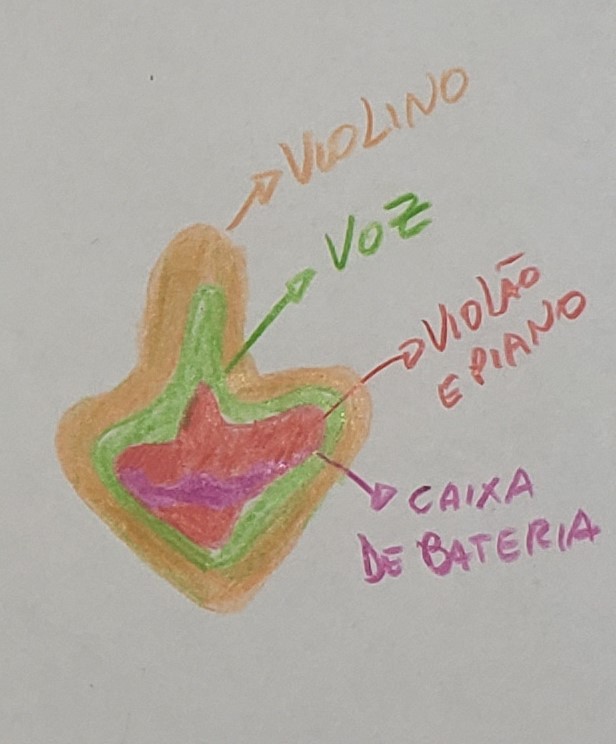 VIOLINO
VOZ
VIOLÃO
E PIANO
CAIXA
DE BATERIA